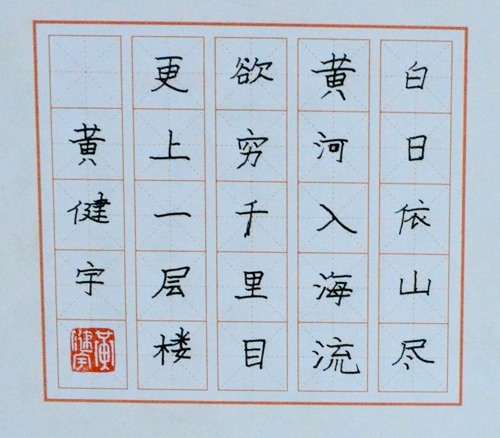 白日依山尽
黄河入海流
欲穷千里目
更上一层楼
黄健宇
黄健宇